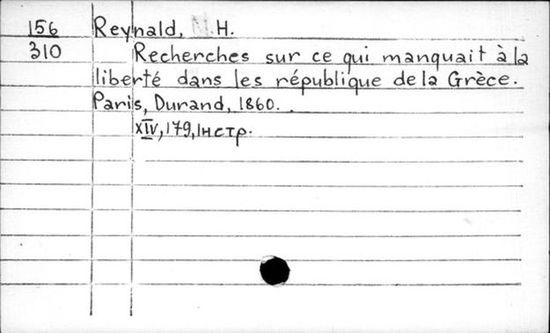 156 Reynald, H.
310 Recherches sur ce qui manquait à la
liberté dans les république de la Grèce.
Paris, Durand, 1860.
XIV, 179, Iнстр.